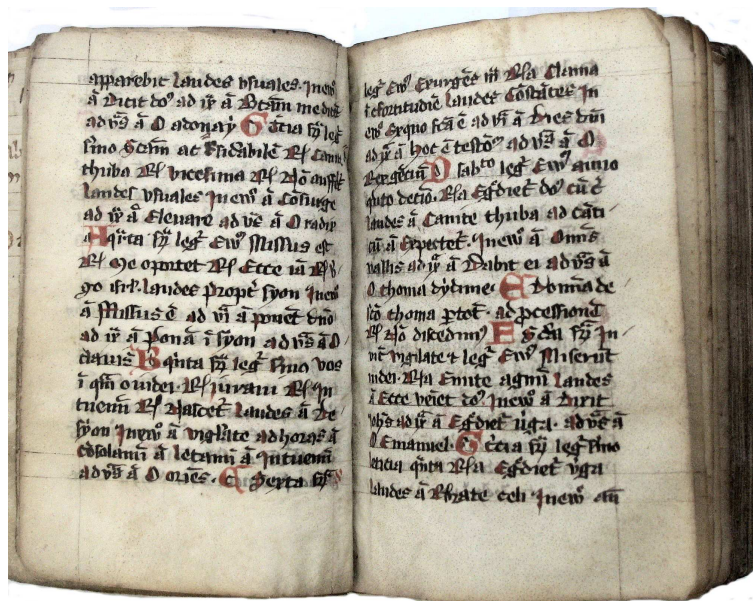 apparebit laudes vsuales. In ew̄
ā Dicit dō ad ꝟ ā Btām me dicēt
ad vs̄ ā O adonay G t̄cia f̄ꝫ leḡ
ſmo Sc̄am ac Rl Canite
thuba Rl viceſima Rl Nō auffet̄
laudes vsuales In ew̄ ā Coſurge
ad ꝟ ā Eleuare ad vs̄ ā O radix
A q̄rta f̄ꝫ leḡ Ew̄ Miſſus eſt
Rl Me oportet Rl Ecce iā Rl
laudes Propt̄ ſyon In ew̄
ā Miſſus ē ad ā ponēt dn̄o
ad ꝟ ā Ponā ī ſyon ad vs̄ ā O
clauis B q̄nta f̄ꝫ leḡ ſmo vos
ī q̄m o iudei. Rl Juraui Rl In
tuemī Rl Naſcet̄ laudes ā De
ſyon In ew̄ ā vigilate ad horas ā
cōſolamī ā letamī ā Intuemī
ad vs̄ ā O oriēs. C Sexta f̄ꝫ
leḡ Ew̄ Exurgēs m̄ Rla Clama
ī fortitudīe laudes Cōſtātes In
ew̄ Ex quo fca ē ad ā Dies dn̄i
ad ꝟ ā Hoc ē teſtōm̄ ad vs̄ ā O
D ſabto leḡ Ew̄ anno
q̄nto decīo. Rla Eḡdiet̄ dō cū ē
laudes ā Canite thuba ad cāti
cū ā Expectet̄. In ew̄ ā Omīs
vallis ad ꝟ ā Dabit ei ad vs̄ ā
O thoma dydime. E Domīa de
ſcō thoma ꝑtet̄. ad ꝓceſſionē
Rl Nō diſcedimꝰ E ſcda f̄ꝫ In
vit̄ vigilate ⁊ leḡ Ew̄ Miſerūt
iudei. Rla Emitte agnū laudes
ā Ecce veīet dō In ew̄ ā Dixit
ioh̄s ad ꝟ ā Eḡdiet̄ v̄ga. ad vs̄ ā
O Emanuel. G t̄cia f̄ꝫ leḡ ſmo
leticia q̄nta Rla Eḡdiet̄ v̄ga
laudes ā Rorate celi. In ew̄ aū